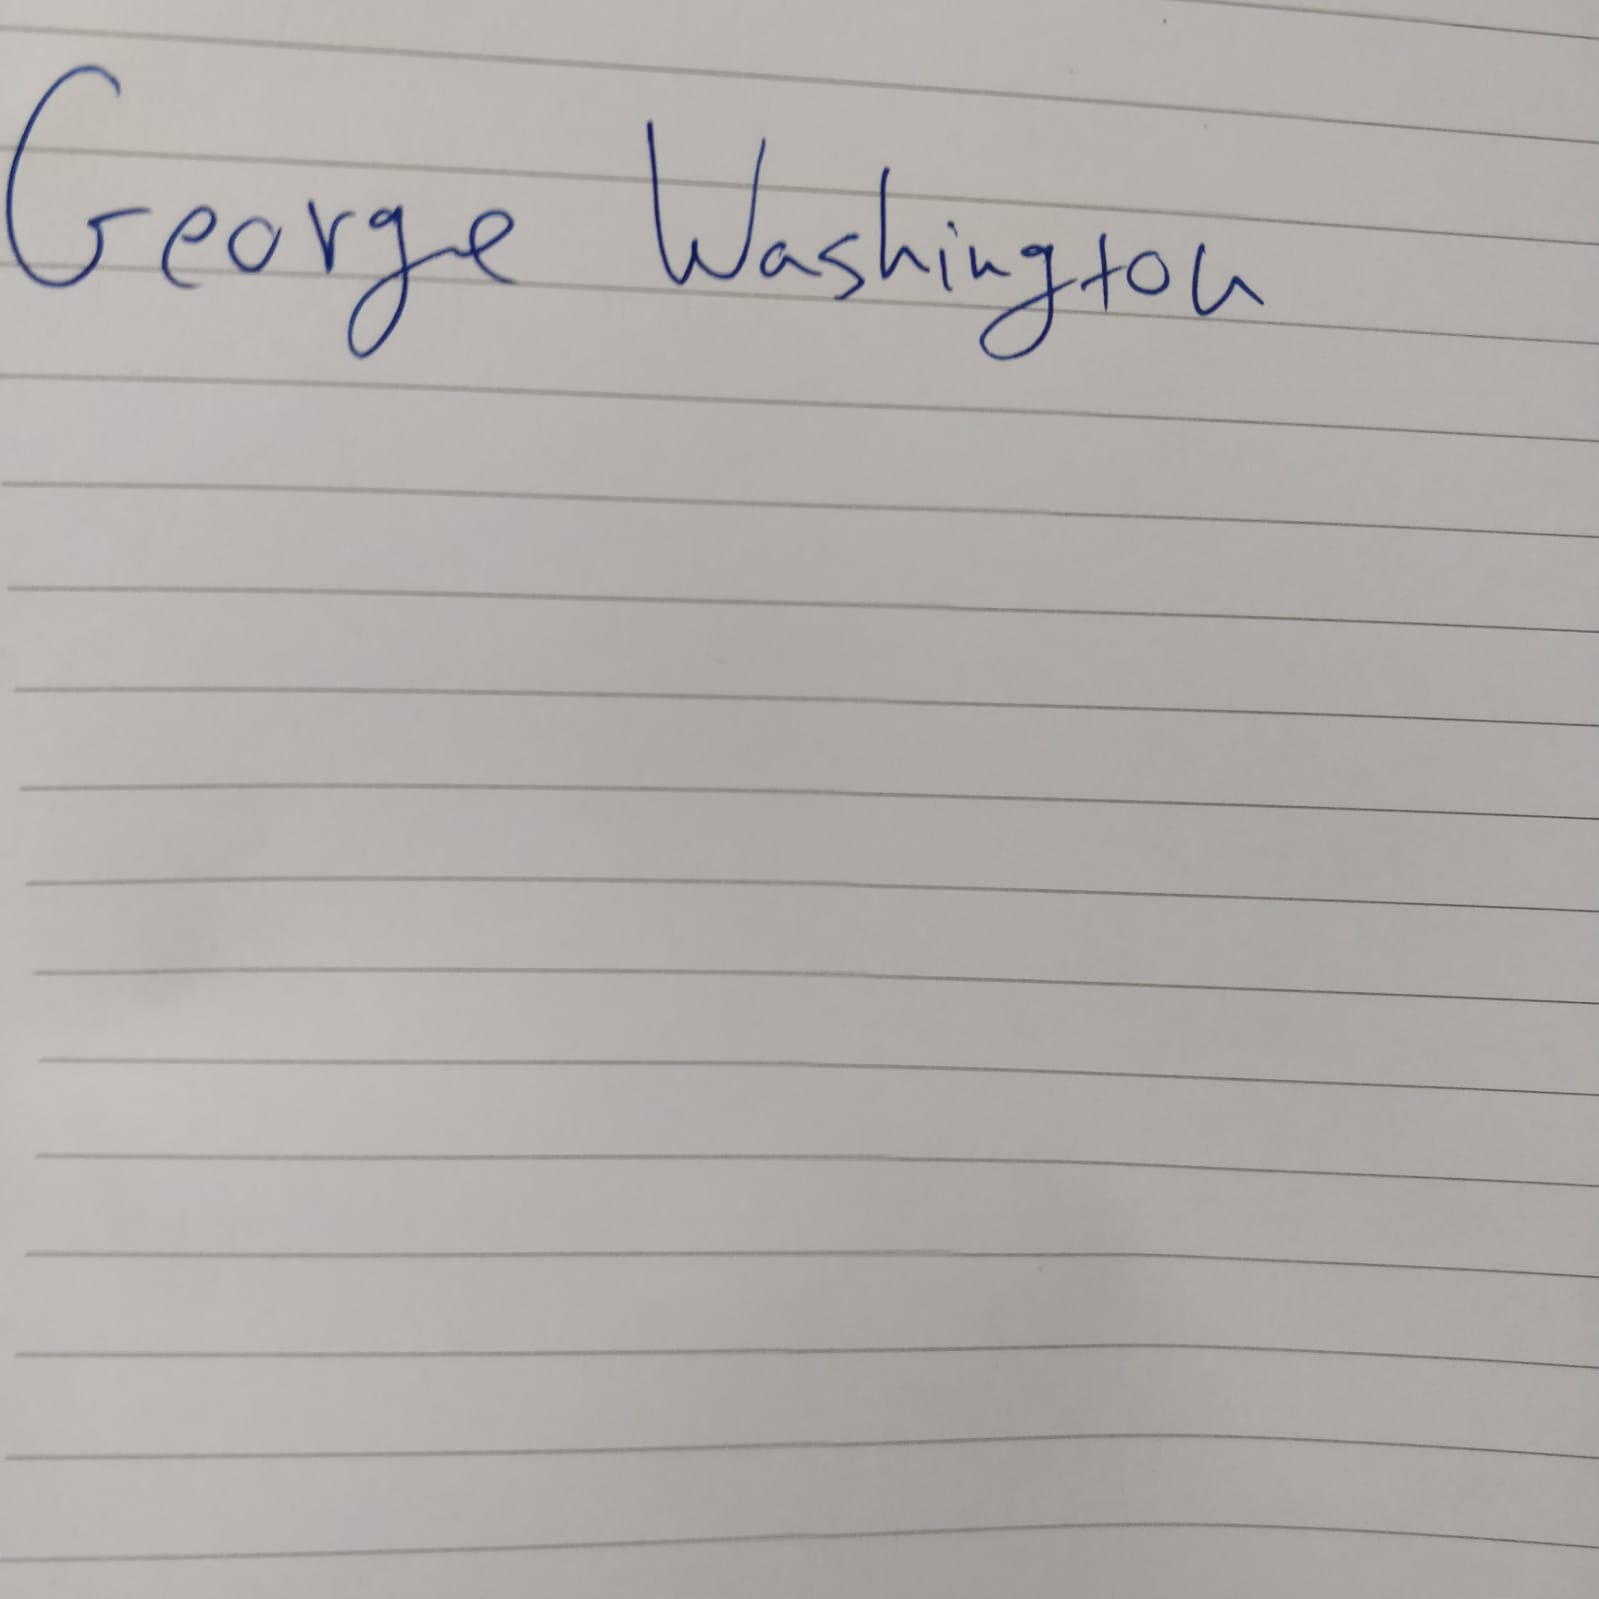 George Washington